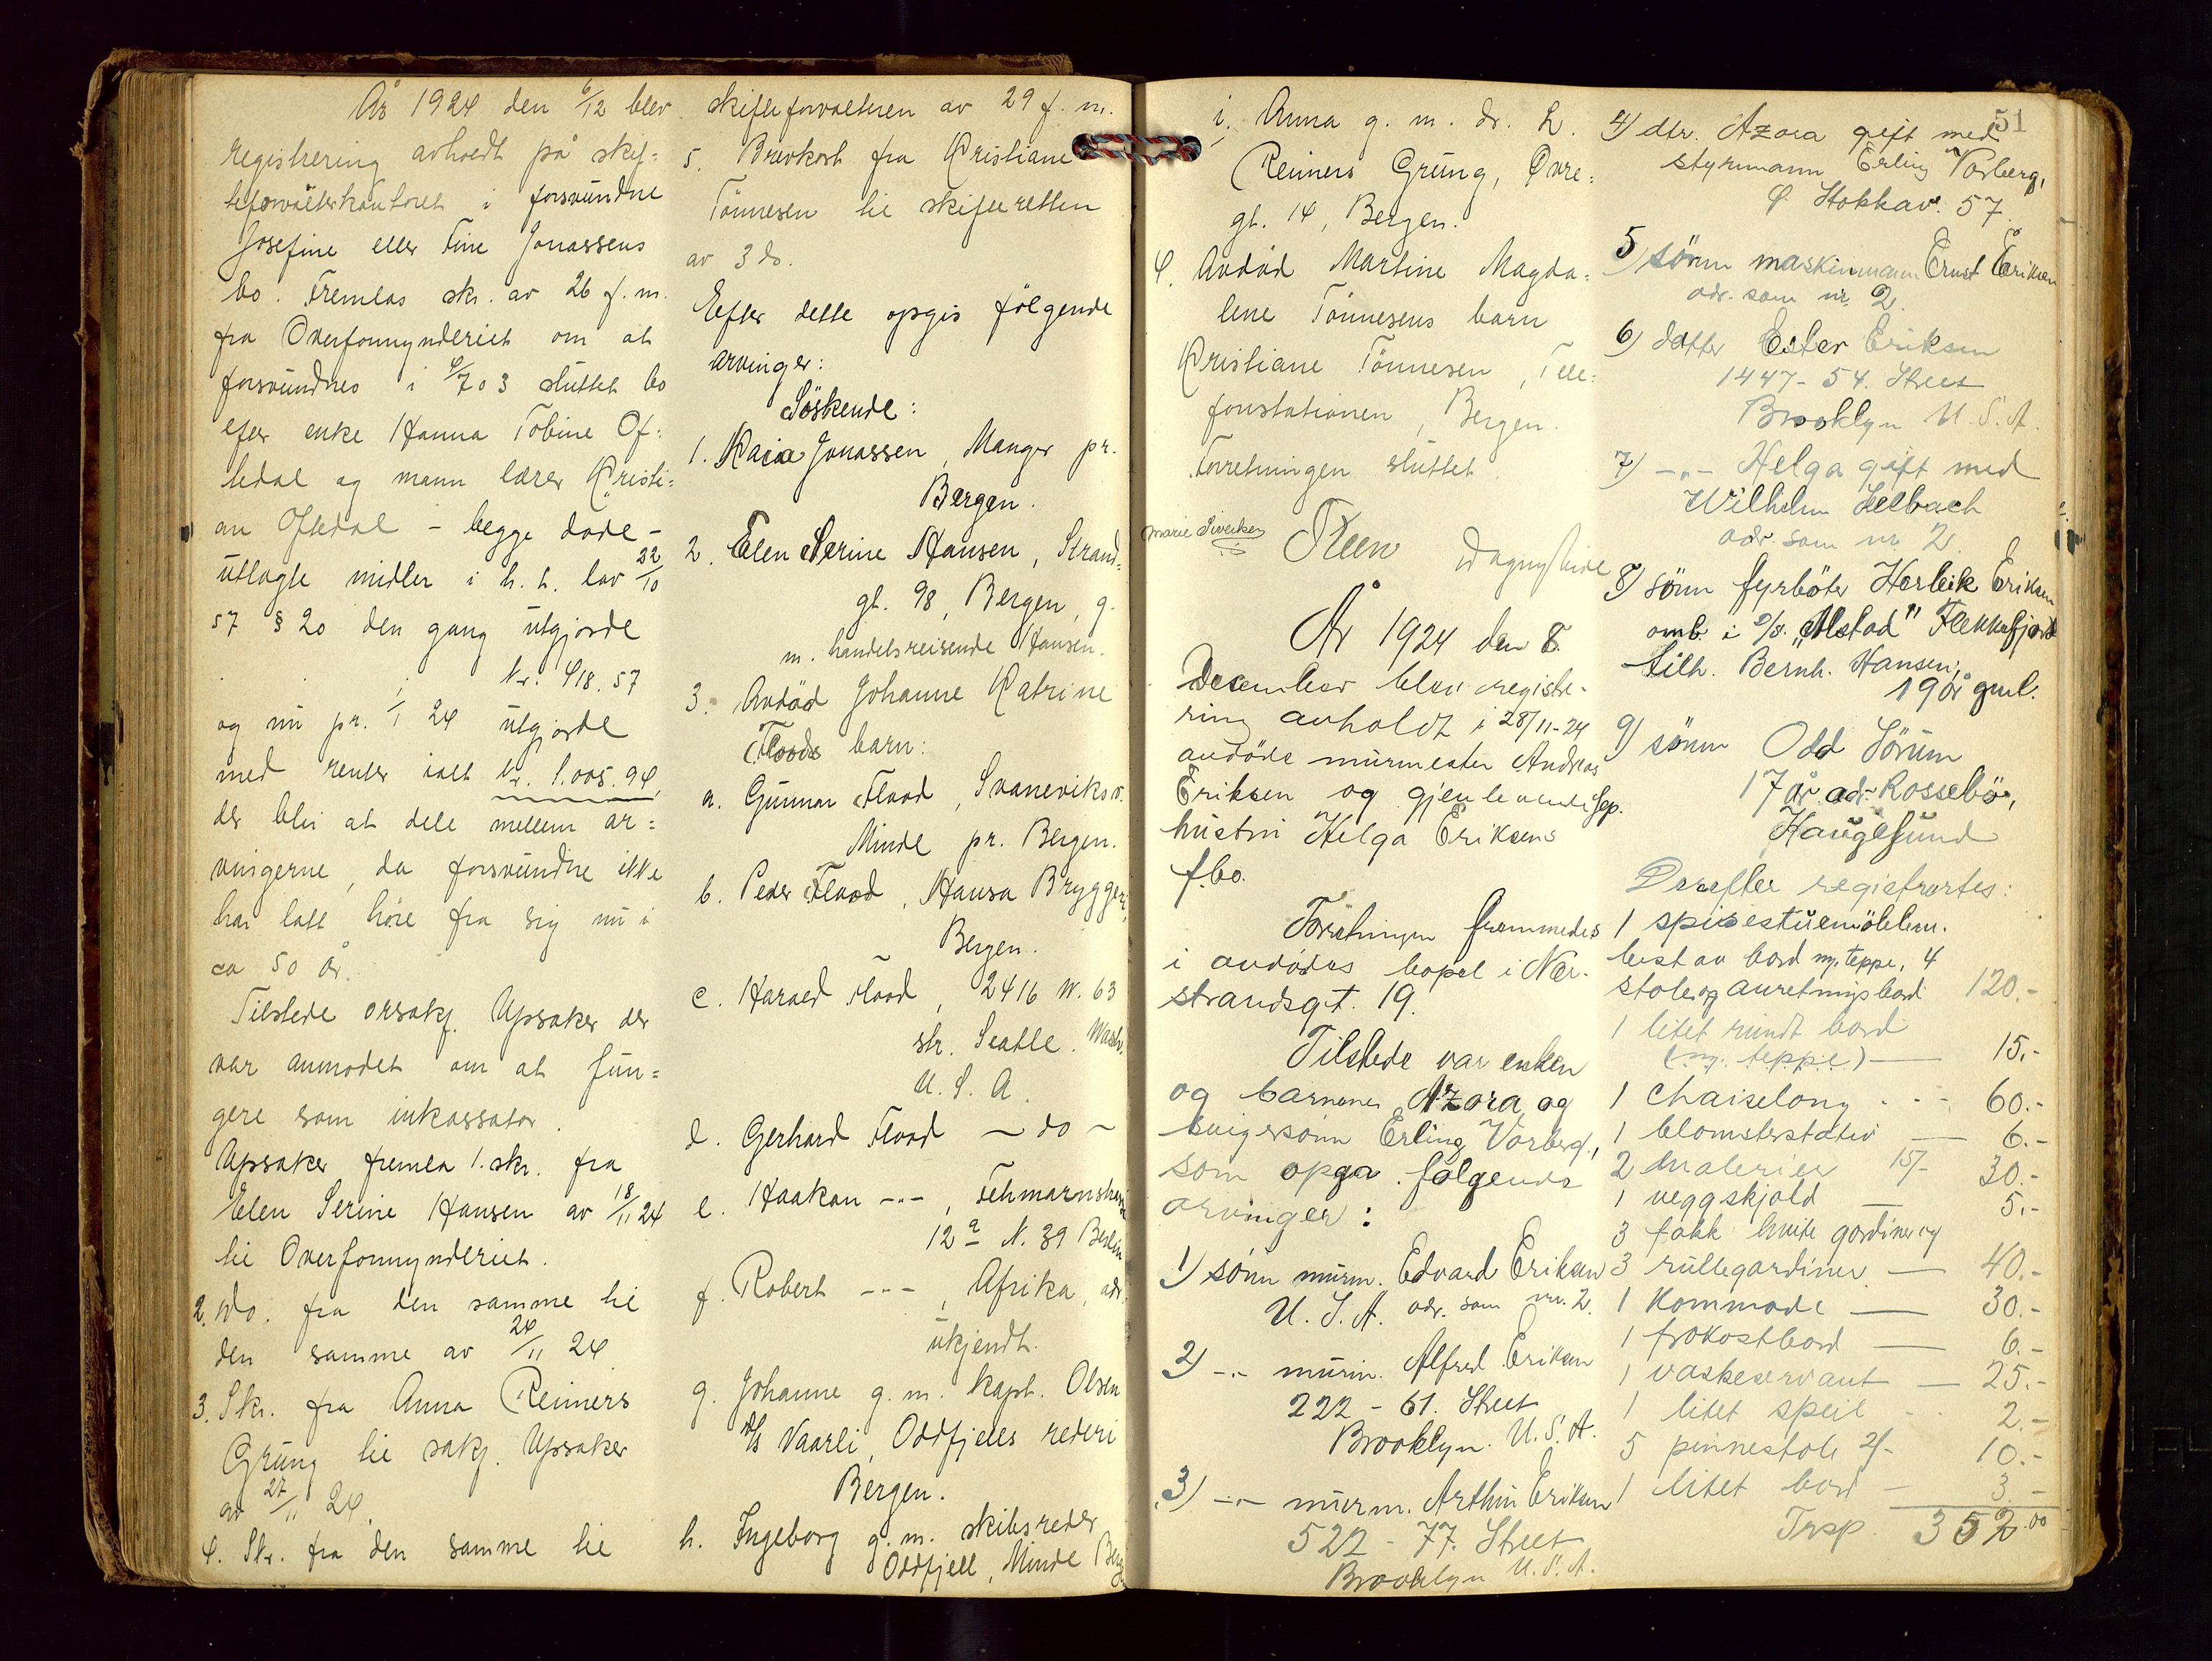 År 1924 den 6/12 blev
registrering avholdt på skif-
teforvalterkontoret i forsvundne
Josefine eller Fine Jonassens
bo. Fremlas skr. av 26 f. m.
fra Overformynderiet om at
forsvundnes i 6/7 03 sluttet bo
efter enke Hanna Tobine Of-
tedal og mann lærer Kristi-
an Oftedal – begge døde –
utlagte midler i h. t. lov 22/10
57 § 20 den gang utgjorde
kr. 418.57
og nu pr. 1/1 24 utgjorde
med renter ialt kr. 1.005.94,
der blir at dele mellem ar-
vingerne, da forsvundne ikke
har latt høre fra sig nu i
ca 50 år.
Tilstede orsakf. Upsaker der
var anmodet om at fun-
gere som inkassator.
Upsaker fremla 1. skr. fra
Elen Serine Hansen av 18/11 24
til Overformynderiet.
2. Do. fra den samme til
den samme av 24/11 24
3. Skr. fra Anna Reimers
Grung til sakf. Upsaker
av 27/11 24.
4. Skr. fra den samme til
skifteforvalteren av 29 f. m.
5. Brevkort fra Kristiane
Tönnesen til skifteretten
av 3 ds.
Efter dette opgis følgende
arvinger:
Söskende:
1. Kaia Jonassen, Manger pr.
Bergen.
2. Elen Serine Hansen, Strand-
gt. 98, Bergen, g.
m. handelsreisende Hansen.
3. Avdöd Johanne Katrine
Floods barn:
a. Gunnar Flood, Svaneviksv.
Minde pr. Bergen.
b. Peder Flood, Hansa Bryggeri,
Bergen.
c. Harald Flood, 2416 W. 63
str. Seatle. Wash.
U. S. A.
d. Gerhard Flood – do –
e. Haakon –"–, Fehmarnstrasse
12 a N. 39 Berlin
f. Robert –"–, Afrika, adr.
ukjendt.
g. Johanne g. m. kapt. Olsen
D/S Vaarli, Oddfjells rederi
Bergen.
h. Ingeborg g. m. skibsreder
Oddfjell, Minde Berg
i. Anna g. m. dr. L.
Reimers Grung, Øvre-
gt. 14, Bergen.
4. Avdöd Martine Magda-
lene Tönnesens barn
Kristiane Tönnesen, Tele-
fonstationen, Bergen.
Forretningen sluttet
Marie Sivertsen
År 1924 den 8.
December blev registe-
ring avholdt i 28/11-24
avdöde murmester Andreas
Eriksen og gjenlevende
hustru Helga Eriksens
f.bo.
Forretningen fremmedes
i avdödes bopel i Nær-
strandsgt. 19.
Tilstede var enken
og barnene Azora og
svigersönn Erling Vorberg,
som opga følgende
arvinger:
1) sönn murm. Edvard Eriksen
U. S. A. adr. som nr. 2.
2) –"– murm. Alfred Eriksen
222 - 61. Street
Brooklyn. U. S. A.
3) –"– murm. Arthur Eriksen
522 - 77. Street
Brooklyn U. S. A.
51
4) dtr. Azora gift med
styrmann Erling Vorberg,
Ø. Stokkav. 57.
5) sönn maskinmann Ernst Eriksen
adr. som nr. 2.
6) datter Ester Eriksen
1447 - 54. Street
Brooklyn U. S. A.
7) –"– Helga gift med
Wilhelm Selbach
adr. som nr. 2.
8) sönn fyrböter Herleik Eriksen
omb. i D/S. "Alstad" Flekkefjord
tilh. Bernh. Hansen,
19 år gml.
9) sönn Odd Sörum
17 år adr. Rossebö,
Haugesund
Derefter registrertes:
1 spisestuemöblem.
best av bord m. teppe, 4
stoler og anretningsbord 120.-
1 litet rundt bord
(m. teppe) — 15.-
1 chaiselong - - - 60.-
1 blomsterstativ — 6.-
2 malerier 15/- 30.-
1 veggskjold — 5.-
3 fakk hvite gardiner og
3 rullegardiner — 40.-
1 kommode — 30.-
1 frokostbord — 6.-
1 vaskeservant — 25.-
1 litet speil - - 2.-
5 pinnestole 2/- 10.-
1 litet bord — 3.-
Trsp. 352.00